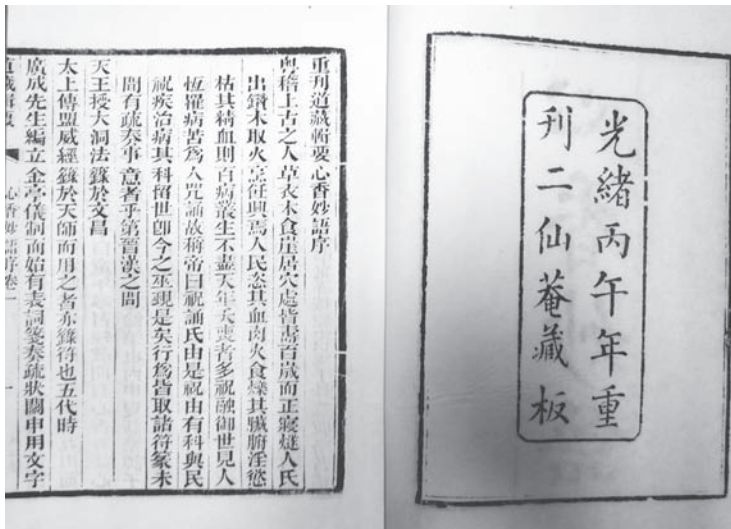 光緒丙午年重
刊二仙菴藏板
重刊道藏輯要心香妙語序
粵稽上古之人草衣木食崖居穴處皆壽百歲而正寢燧人氏
出鑽木取火烹飪興焉人民恣其血肉火食爍其臟腑淫慾
枯其精血則百病叢生不盡天年夭喪者多祝融御世見人
恆罹病苦為人咒誦故稱帝曰祝誦氏由是祝由有科與民
祝疾治病其科留世卽今之巫覡是矣行為皆取諸符篆未
聞有疏奏事意者乎第晉漢之間
天王授大洞法籙於文昌
太上傳盟威經籙於天師而用之者亦籙符也五代時
廣成先生編立金亭儀制而始有表詞箋奏疏狀關申用文字
道藏輯要
心香妙語序卷一
一